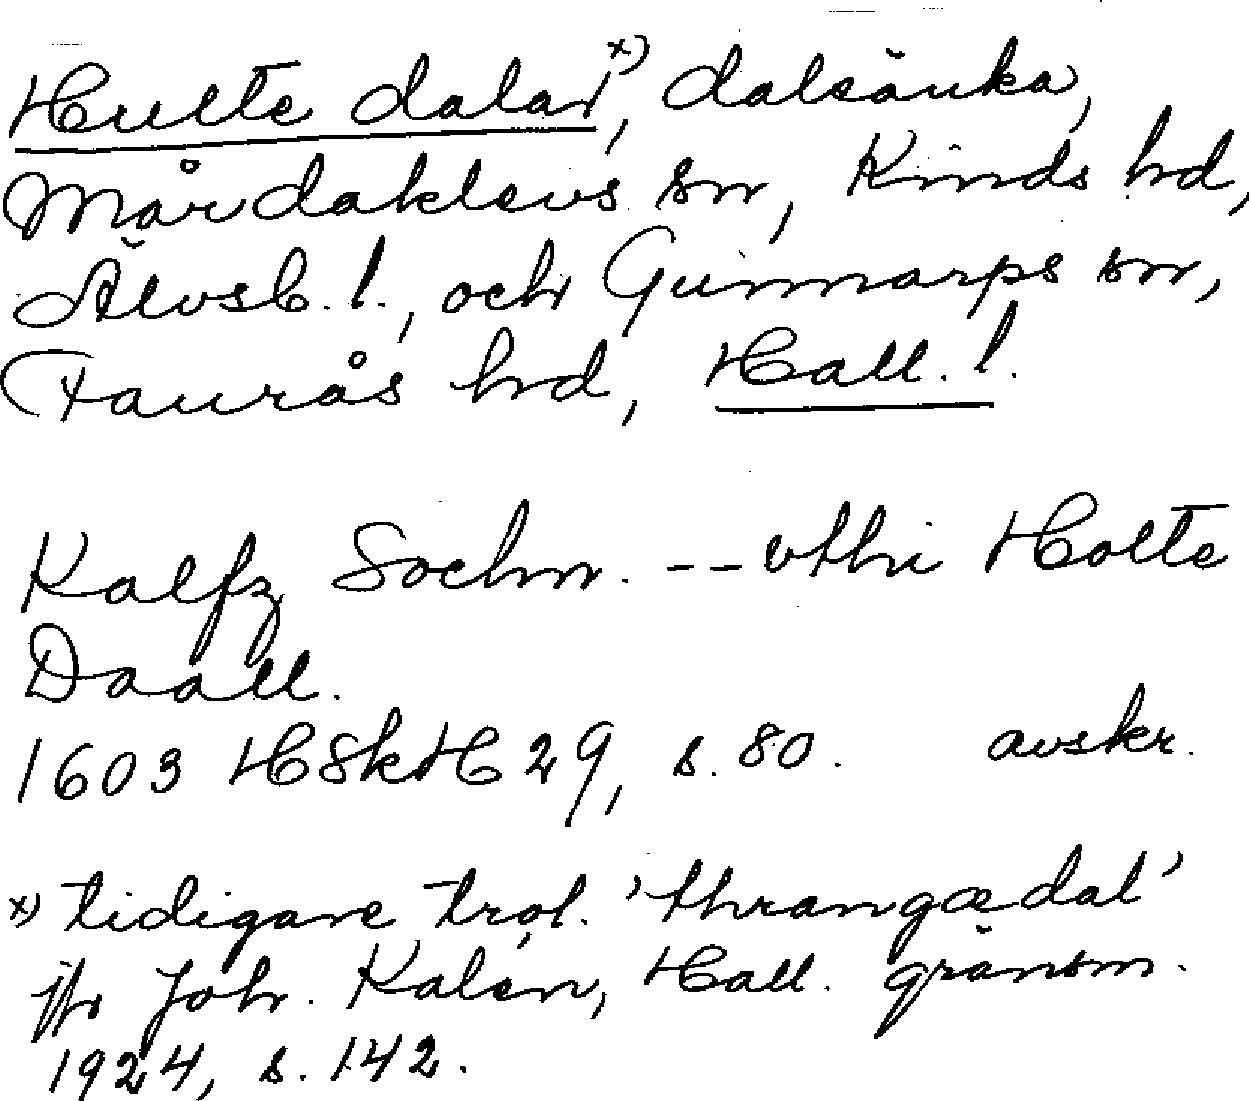 Hulte dalar x), dalsänka,
Mårdaklevs sn, Kinds hd,
Älvsb. l., och Gunnarps sn,
Faurås hd, Hall. l.
Kalfz Sochn. -- vthi Holte
Daall.
1603 HSkH 29, s. 80. avskr.
x) tidigare trol. 'thrangædal'
jfr Joh. Kalén, Hall. gränsm.
1924, s. 142.